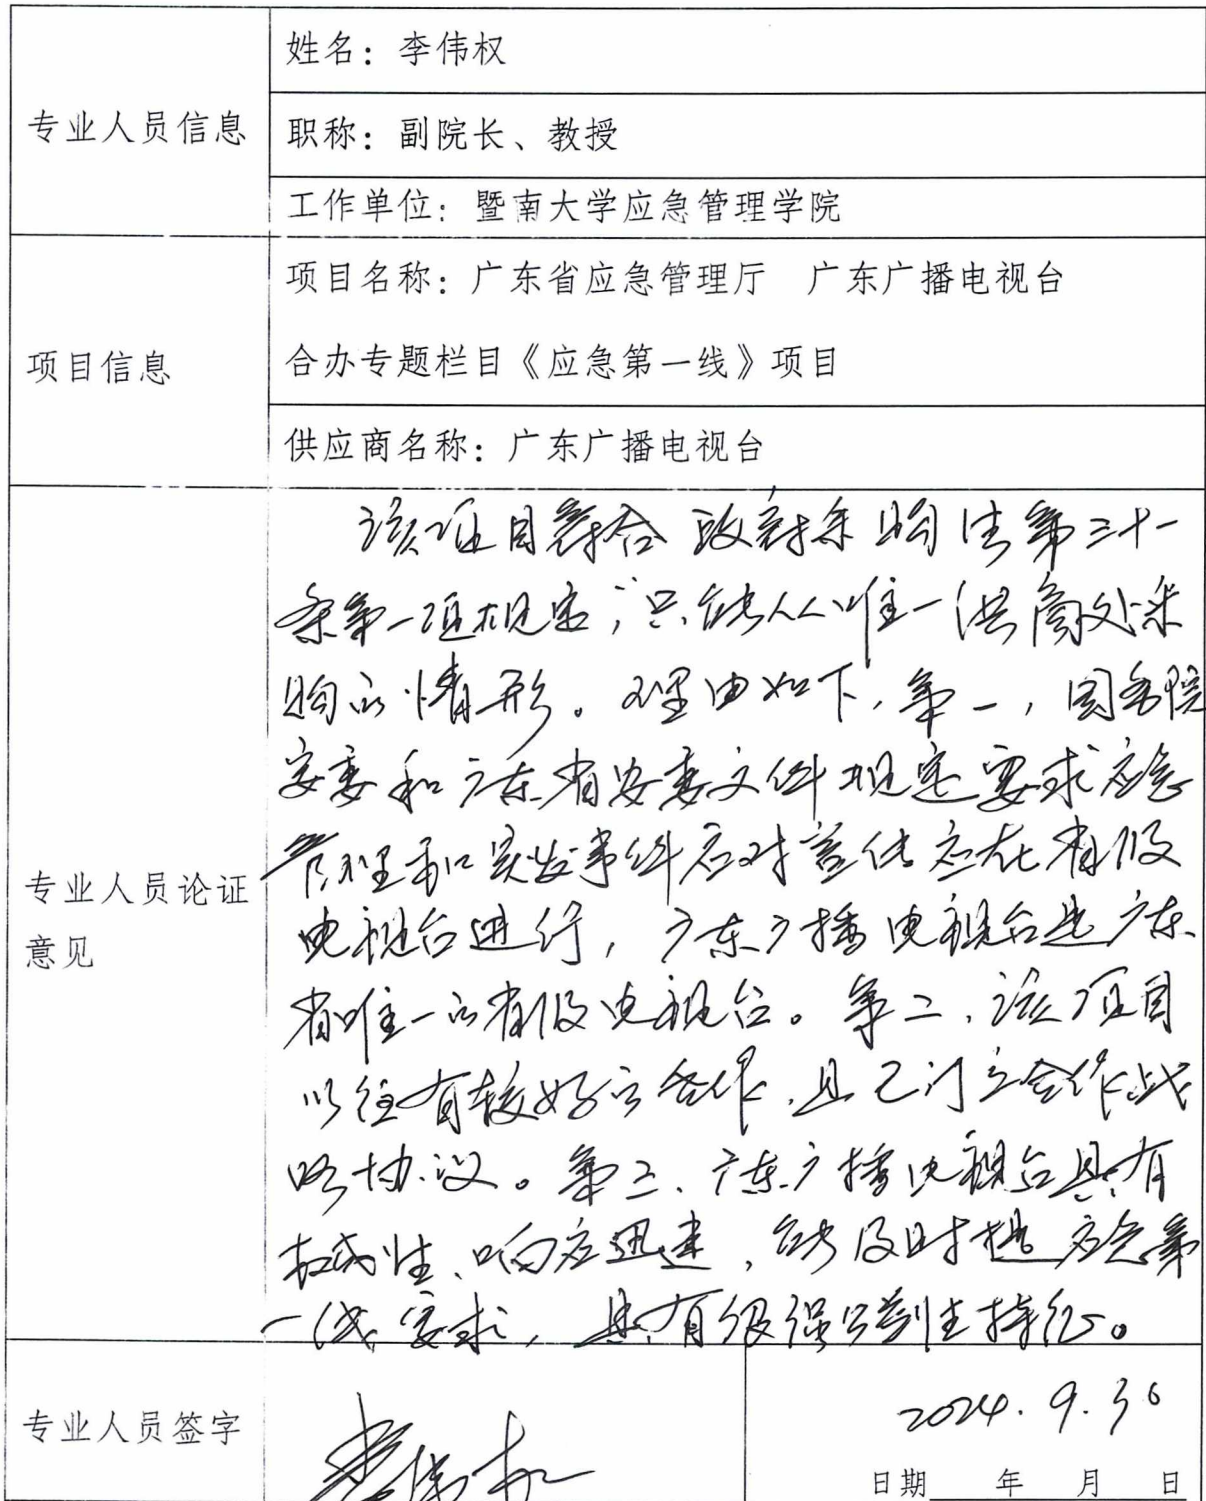 专业人员信息
姓名：李伟权
职称：副院长、教授
工作单位：暨南大学应急管理学院
项目信息
项目名称：广东省应急管理厅　广东广播电视台
合办专题栏目《应急第一线》项目
供应商名称：广东广播电视台
专业人员论证
意见
该项目符合政府采购法第三十一
条第一项规定，只能从唯一供商处采
购的情形。理由如下，第一，国务院
安委和广东省安委文件规定要求应急
管理和突发事件应对宣传应在省级
电视台进行，广东广播电视台是广东
省唯一的省级电视台。第二，该项目
以往有较好的合作，且已订立合作战
略协议。第三、广东广播电视台具有
权威性、响应迅速，能及时提应急第
一线要求，具有很强的特征。
专业人员签字
李伟权
2024.9.30
日期　年　月　日